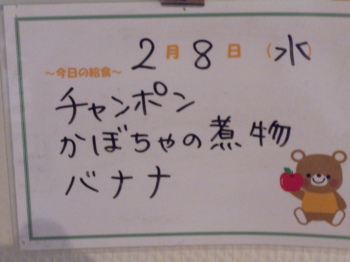 2月8日(水)
〜今日の給食〜
チャンポン
かぼちゃの煮物
バナナ